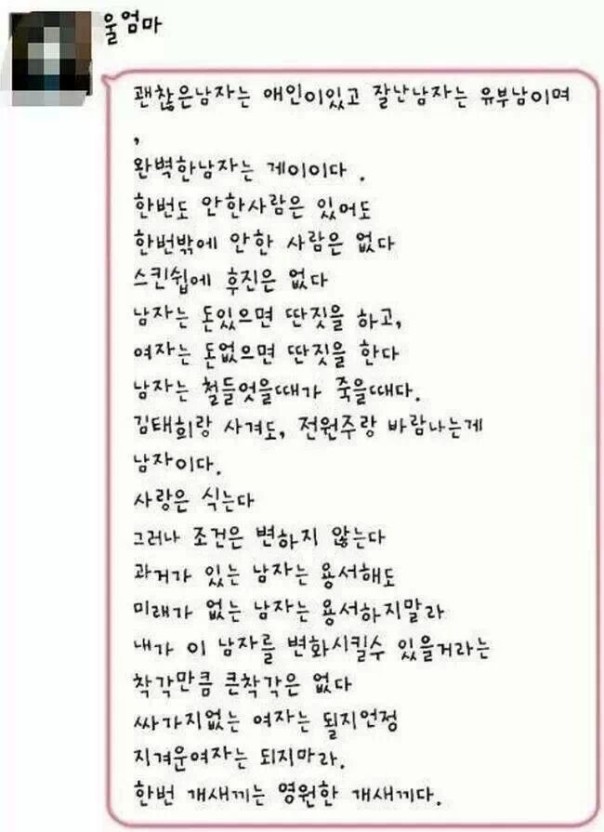 울엄마
괜찮은남자는 애인이있고 잘난남자는 유부남이며
,
완벽한남자는 게이이다 .
한번도 안한사람은 있어도
한번밖에 안한 사람은 없다
스킨쉽에 후진은 없다
남자는 돈있으면 딴짓을 하고,
여자는 돈없으면 딴짓을 한다
남자는 철들엇을때가 죽을때다.
김태희랑 사겨도, 전원주랑 바람나는게
남자이다.
사랑은 식는다
그러나 조건은 변하지 않는다
과거가 있는 남자는 용서해도
미래가 없는 남자는 용서하지말라
내가 이 남자를 변화시킬수 있을거라는
착각만큼 큰착각은 없다
싸가지없는 여자는 될지언정
지겨운여자는 되지마라.
한번 개새끼는 영원한 개새끼다.